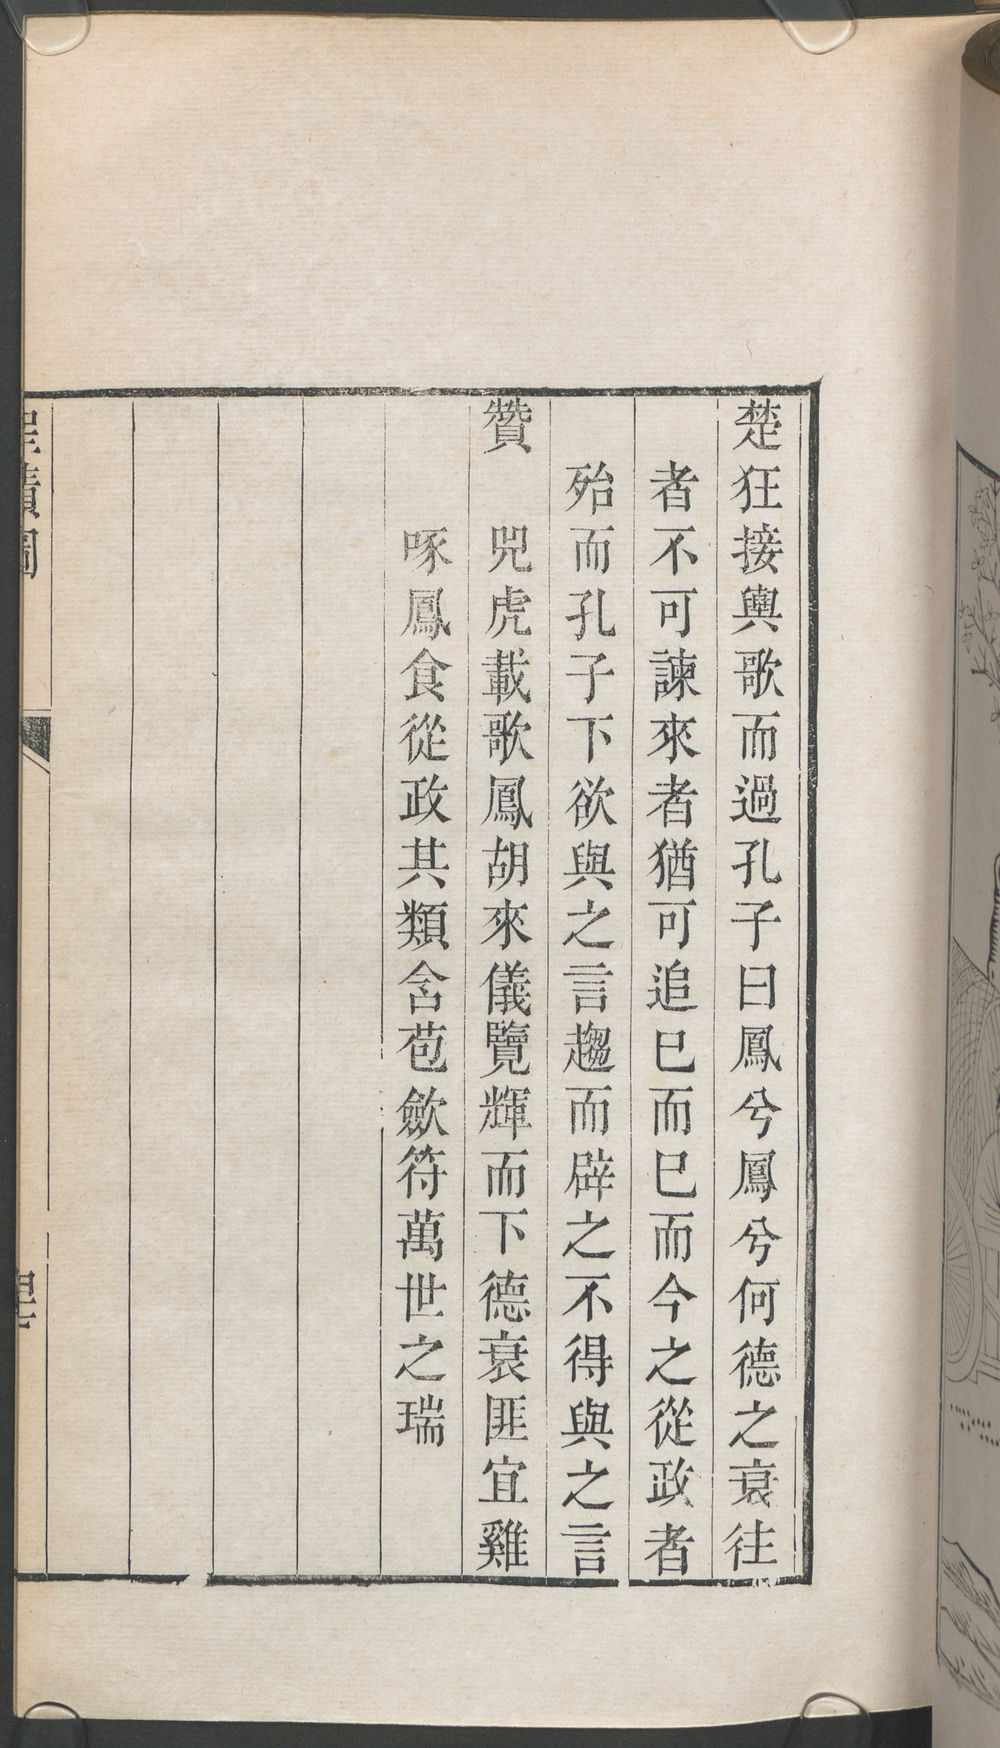 楚狂接輿歌而過孔子曰鳳兮鳳兮何德之衰往
者不可諫來者猶可追已而已而今之從政者
殆而孔子下欲與之言趨而辟之不得與之言
贊　兕虎載歌鳳胡來儀覽輝而下德衰匪宜雞
啄鳳食從政其類含苞歛符萬世之瑞
聖蹟圖